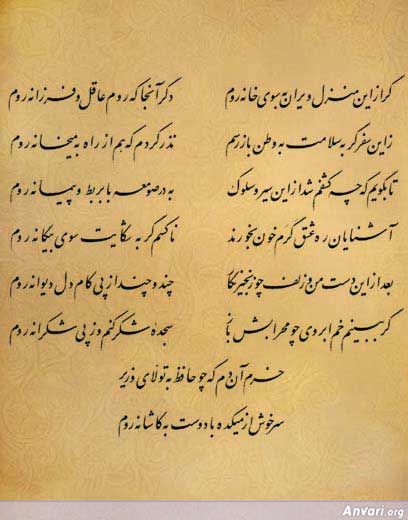 گر ازین منزل ویران به سوی خانه روم دگر آنجا که روم عاقل و فرزانه روم
زین سفر گر به سلامت به وطن بازرسم نذر کردم که هم از راه به میخانه روم
تا بگویم که چه کشفم شد ازین سیر و سلوک به در صومعه با بربط و پیمانه روم
آشنایان ره عشق گرم خون بخورند ناکسم گر به شکایت سوی بیگانه روم
بعد ازین دست من و زلف چو زنجیر نگار چند و چند از پی کام دل دیوانه روم
گر ببینم خم ابروی چو محرابش باز سجده شکر کنم وز پی شکرانه روم
خرم آن دم که چو حافظ به تولای وزیر
سرخوش از میکده با دوست به کاشانه روم
Anvari.org